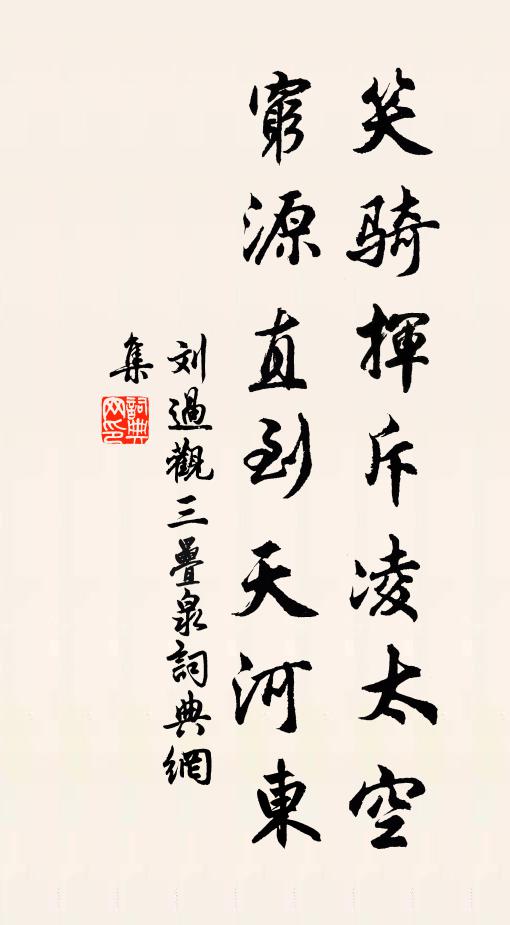 笑騎揮斥凌太空
窮源直到天河東
刘過觀三疊泉詞典網
集
詞典網印